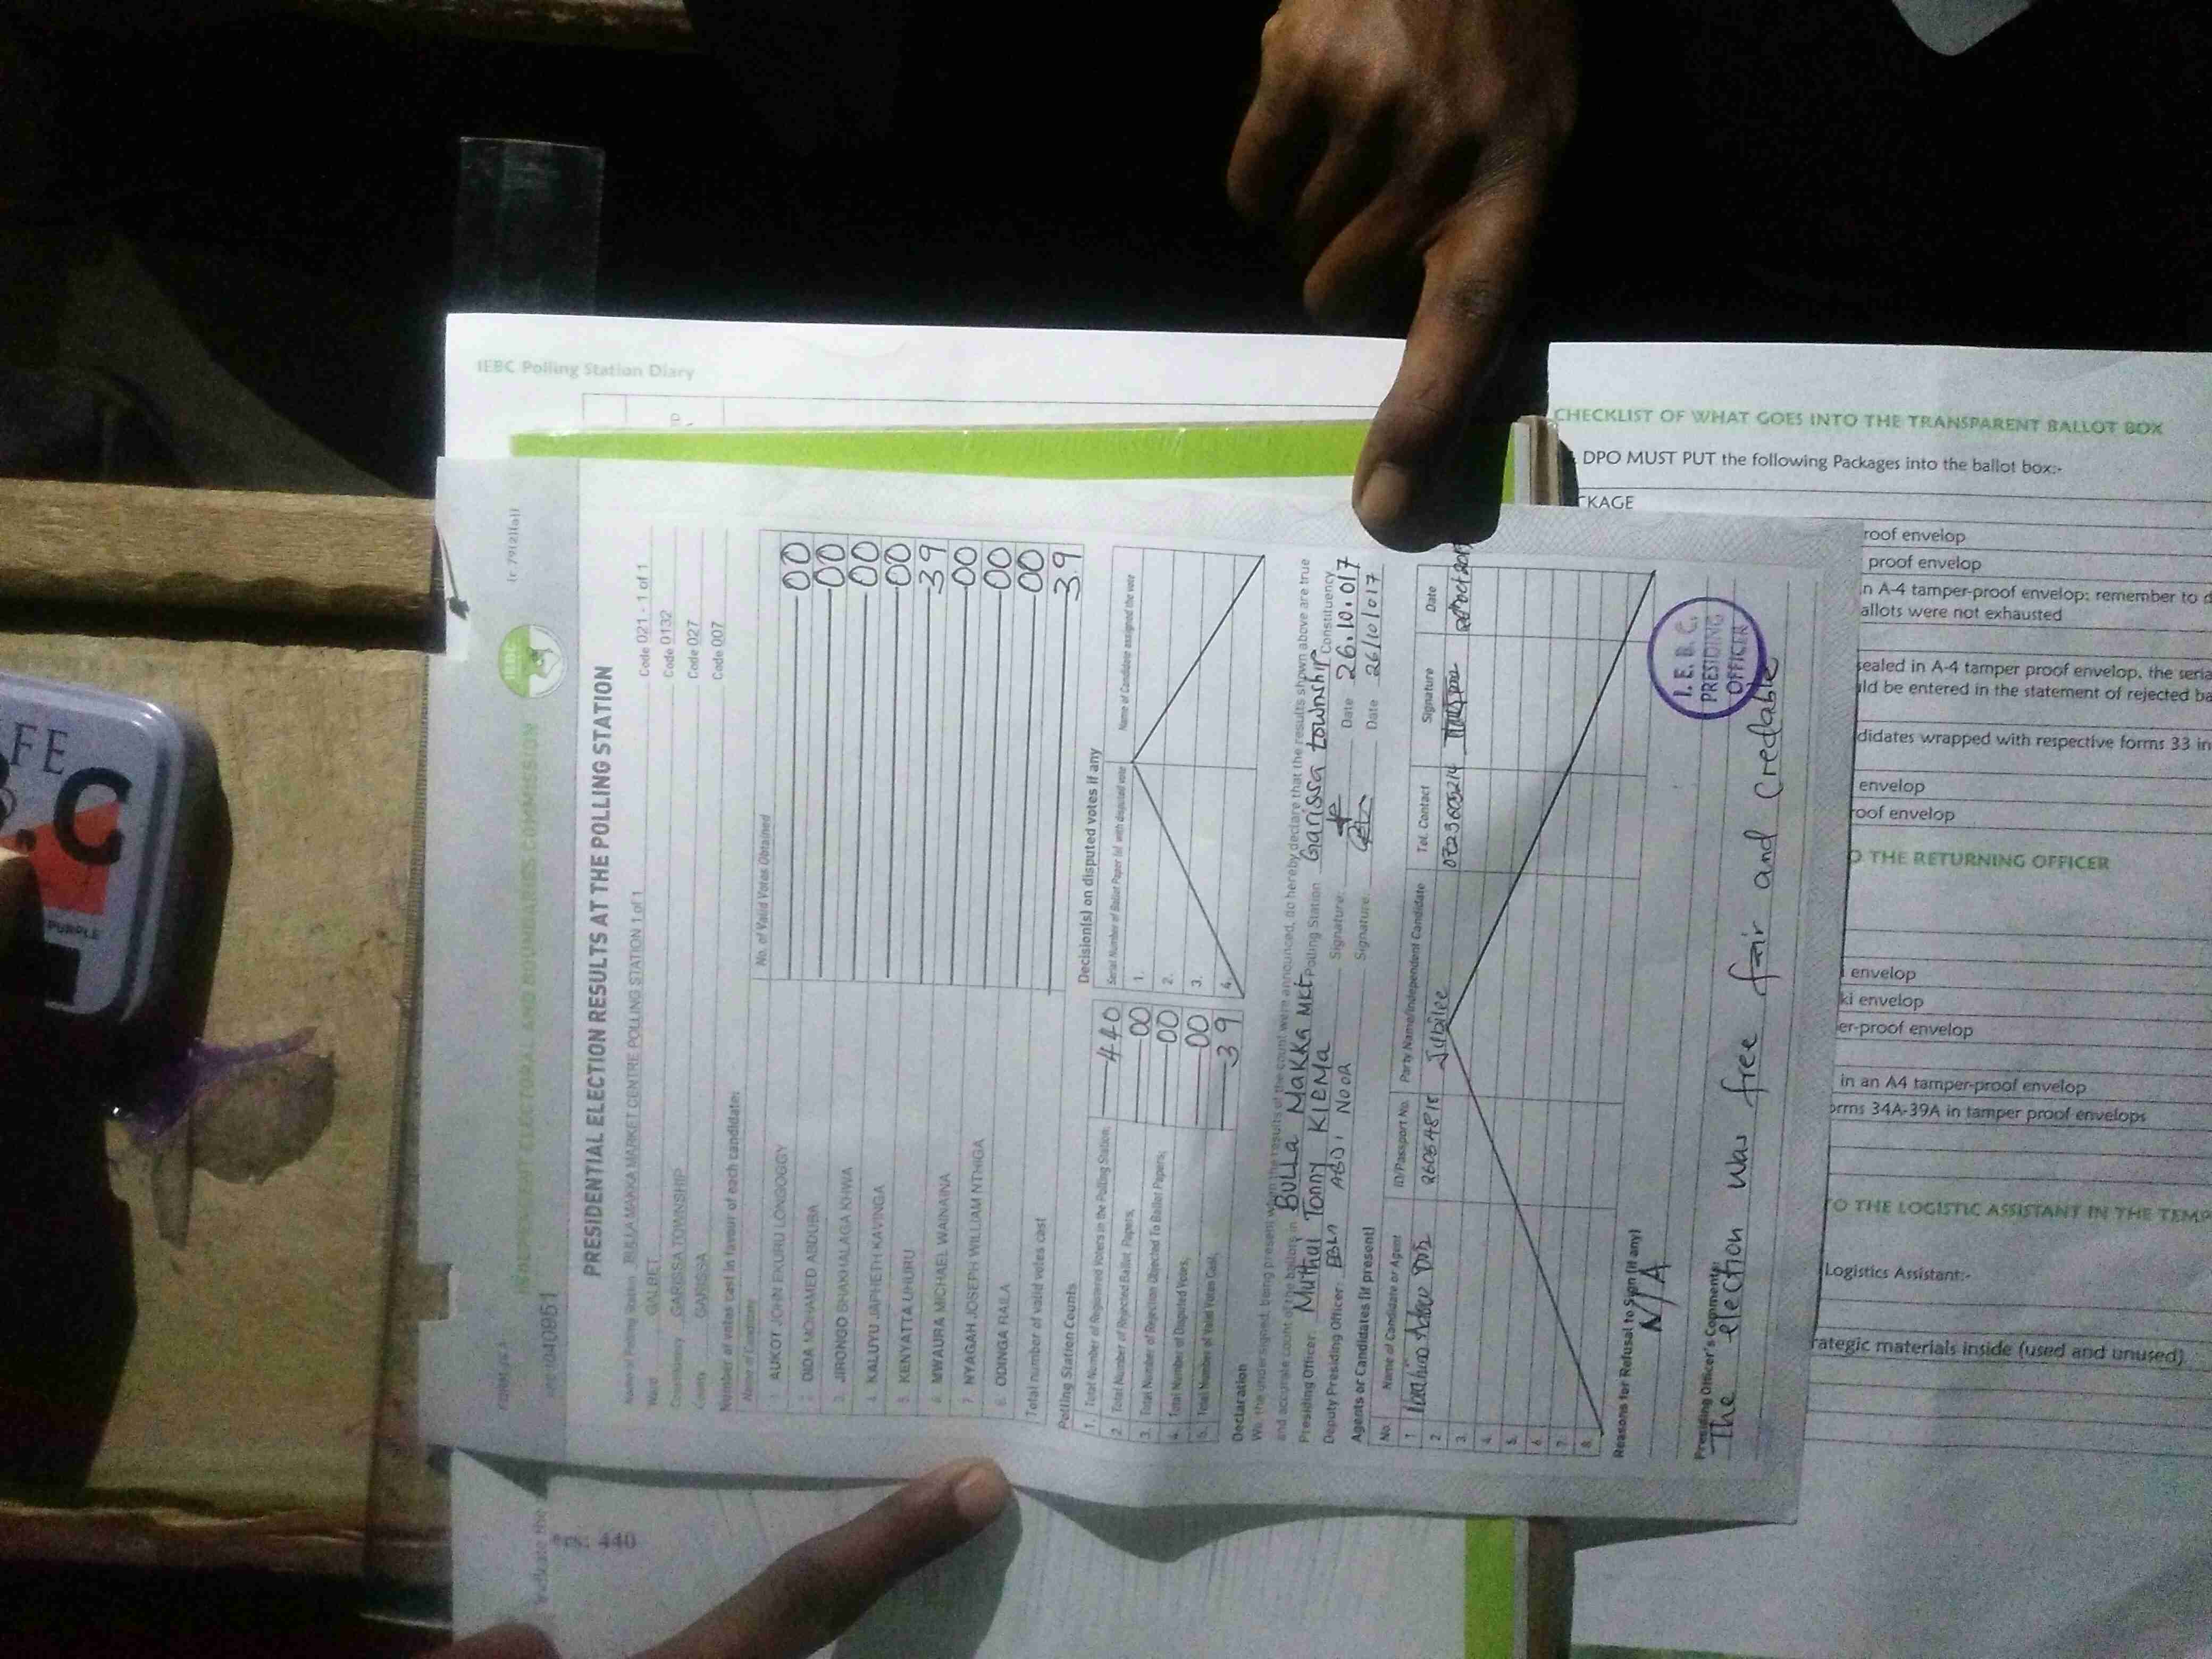 IEBC Polling Station Diary
FORM 34 A
(r 79(2)(a))
IEBC
INDEPENDENT ELECTORAL AND BOUNDARIES COMMISSION
PRESIDENTIAL ELECTION RESULTS AT THE POLLING STATION
Name of Polling Station BULLA MAKKA MARKET CENTRE POLLING STATION 1 of 1 Code 021 - 1 of 1
Ward GALBET Code 0132
Constituency GARISSA TOWNSHIP Code 027
County GARISSA Code 007
Number of votes cast in favour of each candidate:
Name of Candidate No. of Valid Votes Obtained
1. AUKOT JOHN EKURU LONGOGGY 00
2. DIDA MOHAMED ABDUBA 00
3. JIRONGO SHAKHALAGA KHWA 00
4. KALUYU JAPHETH KAVINGA 00
5. KENYATTA UHURU 39
6. MWAURA MICHAEL WAINAINA 00
7. NYAGAH JOSEPH WILLIAM NTHIGA 00
8. ODINGA RAILA 00
Total number of valid votes cast 39
Polling Station Counts
1. Total Number of Registered Voters in the Polling Station; 440
2. Total Number of Rejected Ballot Papers; 00
3. Total Number of Rejection Objected To Ballot Papers; 00
4. Total Number of Disputed Votes; 00
5. Total Number of Valid Votes Cast; 39
Decision(s) on disputed votes if any
Serial Number of Ballot Paper (s) with disputed vote Name of Candidate assigned the vote
1.
2.
3.
4.
Declaration
We, the undersigned, being present when the results of the count were announced, do hereby declare that the results shown above are true
and accurate count of the ballots in BULLA MAKKA MKT Polling Station Garissa township Constituency
Presiding Officer Muthui Tonny KIEMA Signature Date 26.10.017
Deputy Presiding Officer ABDI NOOR Signature Date 26/10/017
Agents or Candidates (if present)
No. Name of Candidate or Agent ID/Passport No. Party Name/Independent Candidate Tel. Contact Signature Date
1 Jubilee
2
3.
4.
5.
6.
7.
8.
Reasons for Refusal to Sign (if any)
N/A
Presiding Officer's Comments:
The election was free fair and Credable
I. E. B. C.
PRESIDING
OFFICER
CHECKLIST OF WHAT GOES INTO THE TRANSPARENT BALLOT BOX
DPO MUST PUT the following Packages into the ballot box:-
CKAGE
roof envelop
proof envelop
n A-4 tamper-proof envelop; remember to d
allots were not exhausted
sealed in A-4 tamper proof envelop, the seria
ld be entered in the statement of rejected ba
didates wrapped with respective forms 33 in
envelop
roof envelop
O THE RETURNING OFFICER
envelop
ki envelop
er-proof envelop
in an A4 tamper-proof envelop
orms 34A-39A in tamper proof envelops
O THE LOGISTIC ASSISTANT IN THE TEMP
Logistics Assistant:-
rategic materials inside (used and unused)
Indicate the
440
FE
PURPLE